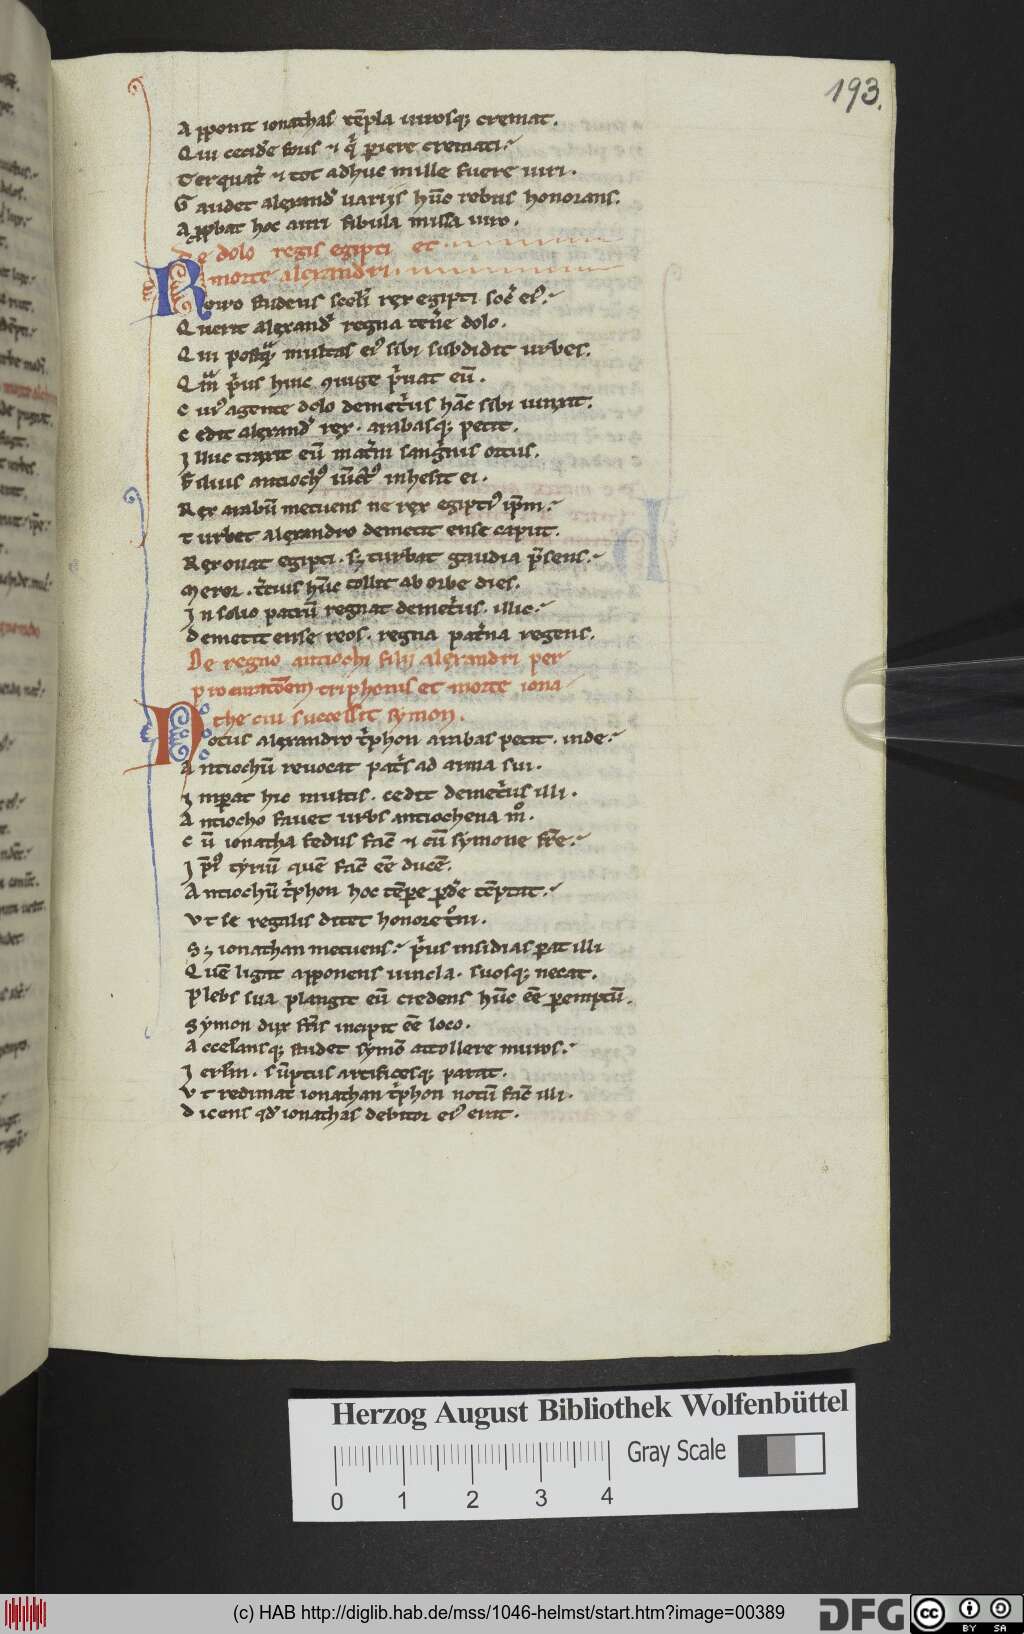 193.
Apponit ionathas tēpla uirosq; cremat.
Qui cecidē ferro
Terquat᷑ ⁊ tot adhuc mille fuere uiri.
Gaudet alexand᷑ uarijs hūc rebus honorans.
Approbat hoc auri fibula missa uiro.
De dolo regis egipti et
morte alexandri.
studens rex egipti
Querit alexand᷑ regna tenēe dolo.
Qui postq̄ multas ei᷒ sibi subdidit urbes.
p̄us hinc p̄uat eū.
agente dolo demetr̄us hāc sibi iunxit.
Cedit alexand᷑ rex. arabasq; petit.
Illuc traxit eū matr̄ni sanguīis ortus.
Filius antioch᷒ iūct᷒ inhesit ei.
Rex arabū metuens ne rex egipti᷒ ip̄m.
Turbet alexandro demetit ense caput.
Rex ouat egipti. sꝫ turbat gaudia p̄sens.
Meror. t̄cius hūc tollit ab orbe dies.
In solio patrū regnat demetr̄us. illic.
Demetit ense reos. regna pat̄na regens.
De regno antiochi filij alexandri per
procuratōem triphonis et morte iona
the cui successit symon.
Notus alexandro t̄phon arabas petit. inde.
Antiochū reuocat pat̄s ad arma sui.
Imp̄at hic multis. cedit demetr̄us illi.
Antiocho fauet urbs antiochena m̊.
Cū ionatha fedus fac̄ ⁊ cū symone fr̄e.
tyriū quē fac̄ eē ducē.
Antiochū t̄phon hoc tēpe p̄dē tēptat.
Vt se regalis ditet honore tͦni.
Sꝫ ionathan metuens. p̄us insidias parat illi
Quē ligat apponens uincla. suosq; necat.
Plebs sua plangit eū credens hūc eē peremptū.
Symon dux fr̄is incipit eē loco.
Acceleransq; studet symō attollere muros.
Ierl̄m. sūptus artificesq; parat.
Vt redimat ionathan t̄phon notū fac̄ illi.
Dicens qd̄ ionathas debitor ei᷒ erat.
Herzog August Bibliothek Wolfenbüttel
Gray Scale
0 1 2 3 4
(c) HAB http://diglib.hab.de/mss/1046-helmst/start.htm?image=00389
DFG
cc BY SA